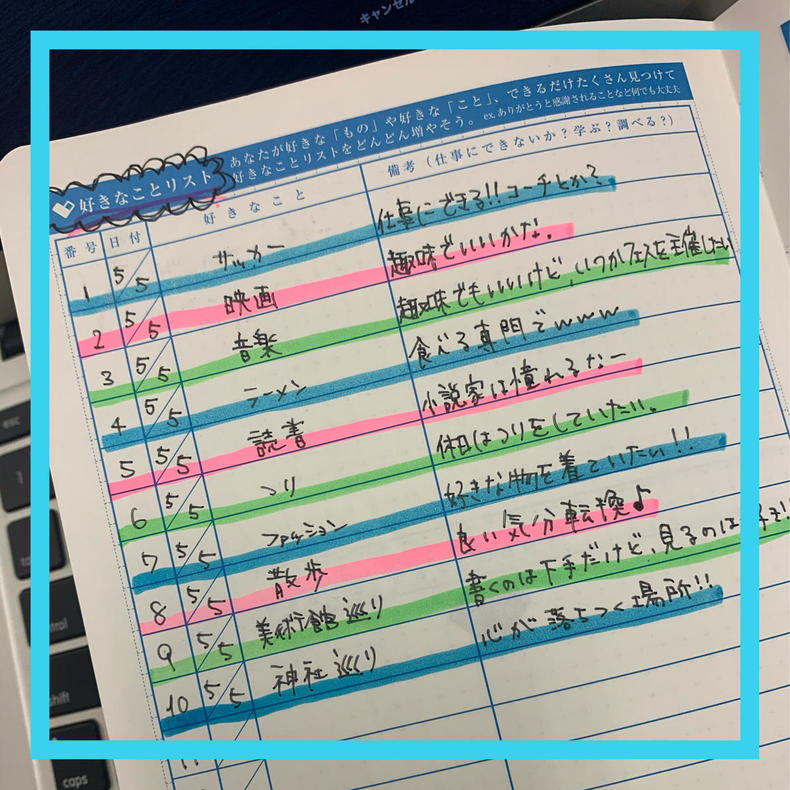 キャンセル
あなたが好きな「もの」や好きな「こと」、できるだけたくさん見つけて
好きなことリストをどんどん増やそう。 ex.ありがとうと感謝されることなど何でも大丈夫
好きなことリスト
番号 日付 好きなこと 備考（仕事にできないか？学ぶ？調べる？）
1 5/5 サッカー 仕事にできる!! コーチとか?
2 5/5 映画 趣味でいいかな。
3 5/5 音楽 趣味でもいいけど、いつかフェスを主催したい
4 5/5 ラーメン 食べる専門でwww
5 5/5 読書 小説家は憧れるなー
6 5/5 つり 休日はつりをしていたい。
7 5/5 ファッション 好きな物を着ていたい!!
8 5/5 散歩 良い気分転換♪
9 5/5 美術館巡り 書くのは下手だけど、見るのは
10 5/5 神社巡り 心が落ちつく場所!!
11
esc
1
shift
caps